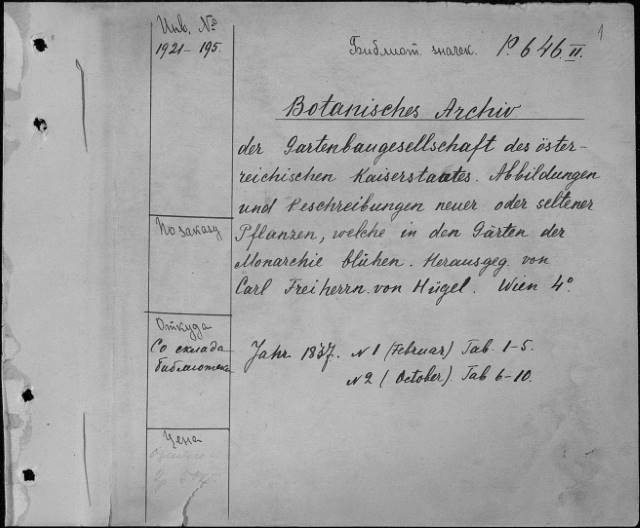 Инв. №
1921–195.
Библиот. значек. P. 646. II.
1
Botanisches Archiv
der Gartenbaugesellschaft des öster-
reichischen Kaiserstaates. Abbildungen
und Beschreibungen neuer oder seltener
Pflanzen, welche in den Gärten der
Monarchie blühen. Herausgeg. von
Carl Freiherrn von Hügel. Wien 4°.
По заказу
Откуда
Со склада
библиотеки
Jahr 1837. N 1 (Februar) Tab. 1–5.
N 2 (October). Tab 6–10.
Цена